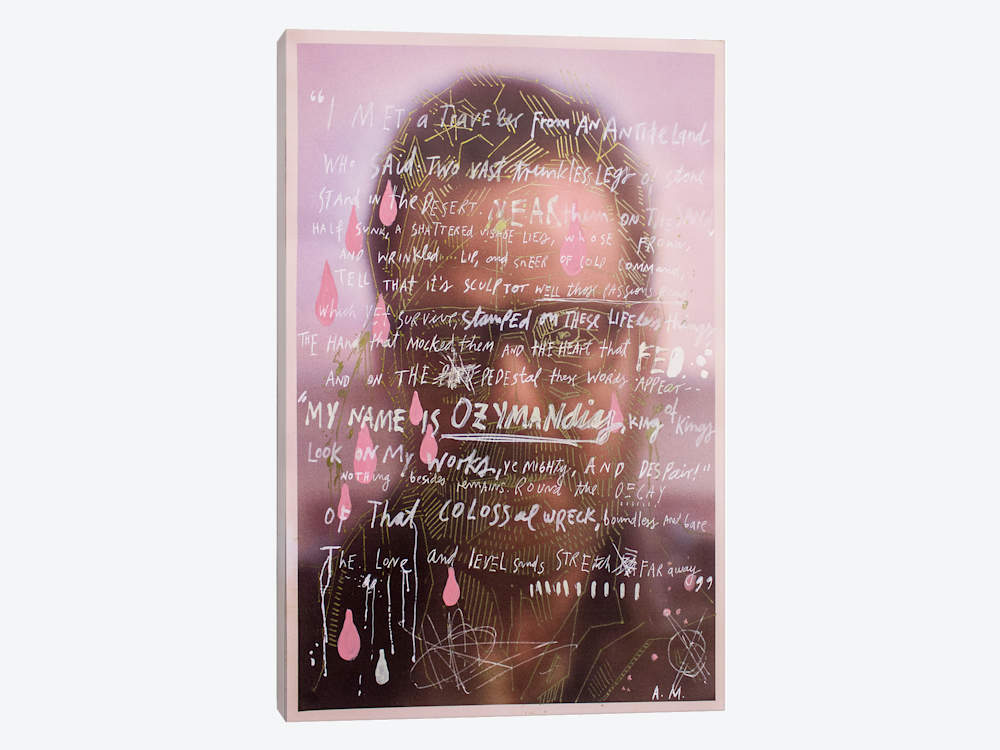 “I MET a Traveler From AN ANTIKE Land
Who SAID: TWO VAST trunkLES LEGS of stone
STAND IN the DESERT. NEAR them ON THE SAND,
HALF SUNK, A SHATTERED VISAGE LIES, WHOSE FROWN,
AND WRINKLED LIP, and SNEER OF COLD COMMAND,
TELL THAT it's SCULPTOT WELL those PASSIONS READ
which YET SURVIVE, Stamped on THESE LIFEless things,
THE HAND that MOCKED them AND THE HEART that FED:
AND ON THE PEDEstal these WORDS APPEAR--
"MY NAME IS OZYMANdias, KING of Kings
LOOK ON My WORKS, YE MIGHTY, AND DESPAIR!"
NOTHING besides remains. ROUND the DECAY
OF That COLOSSal WRECK, boundless And bare
The LONE and LEVEL Sands STREtch FAR away”
A.M.